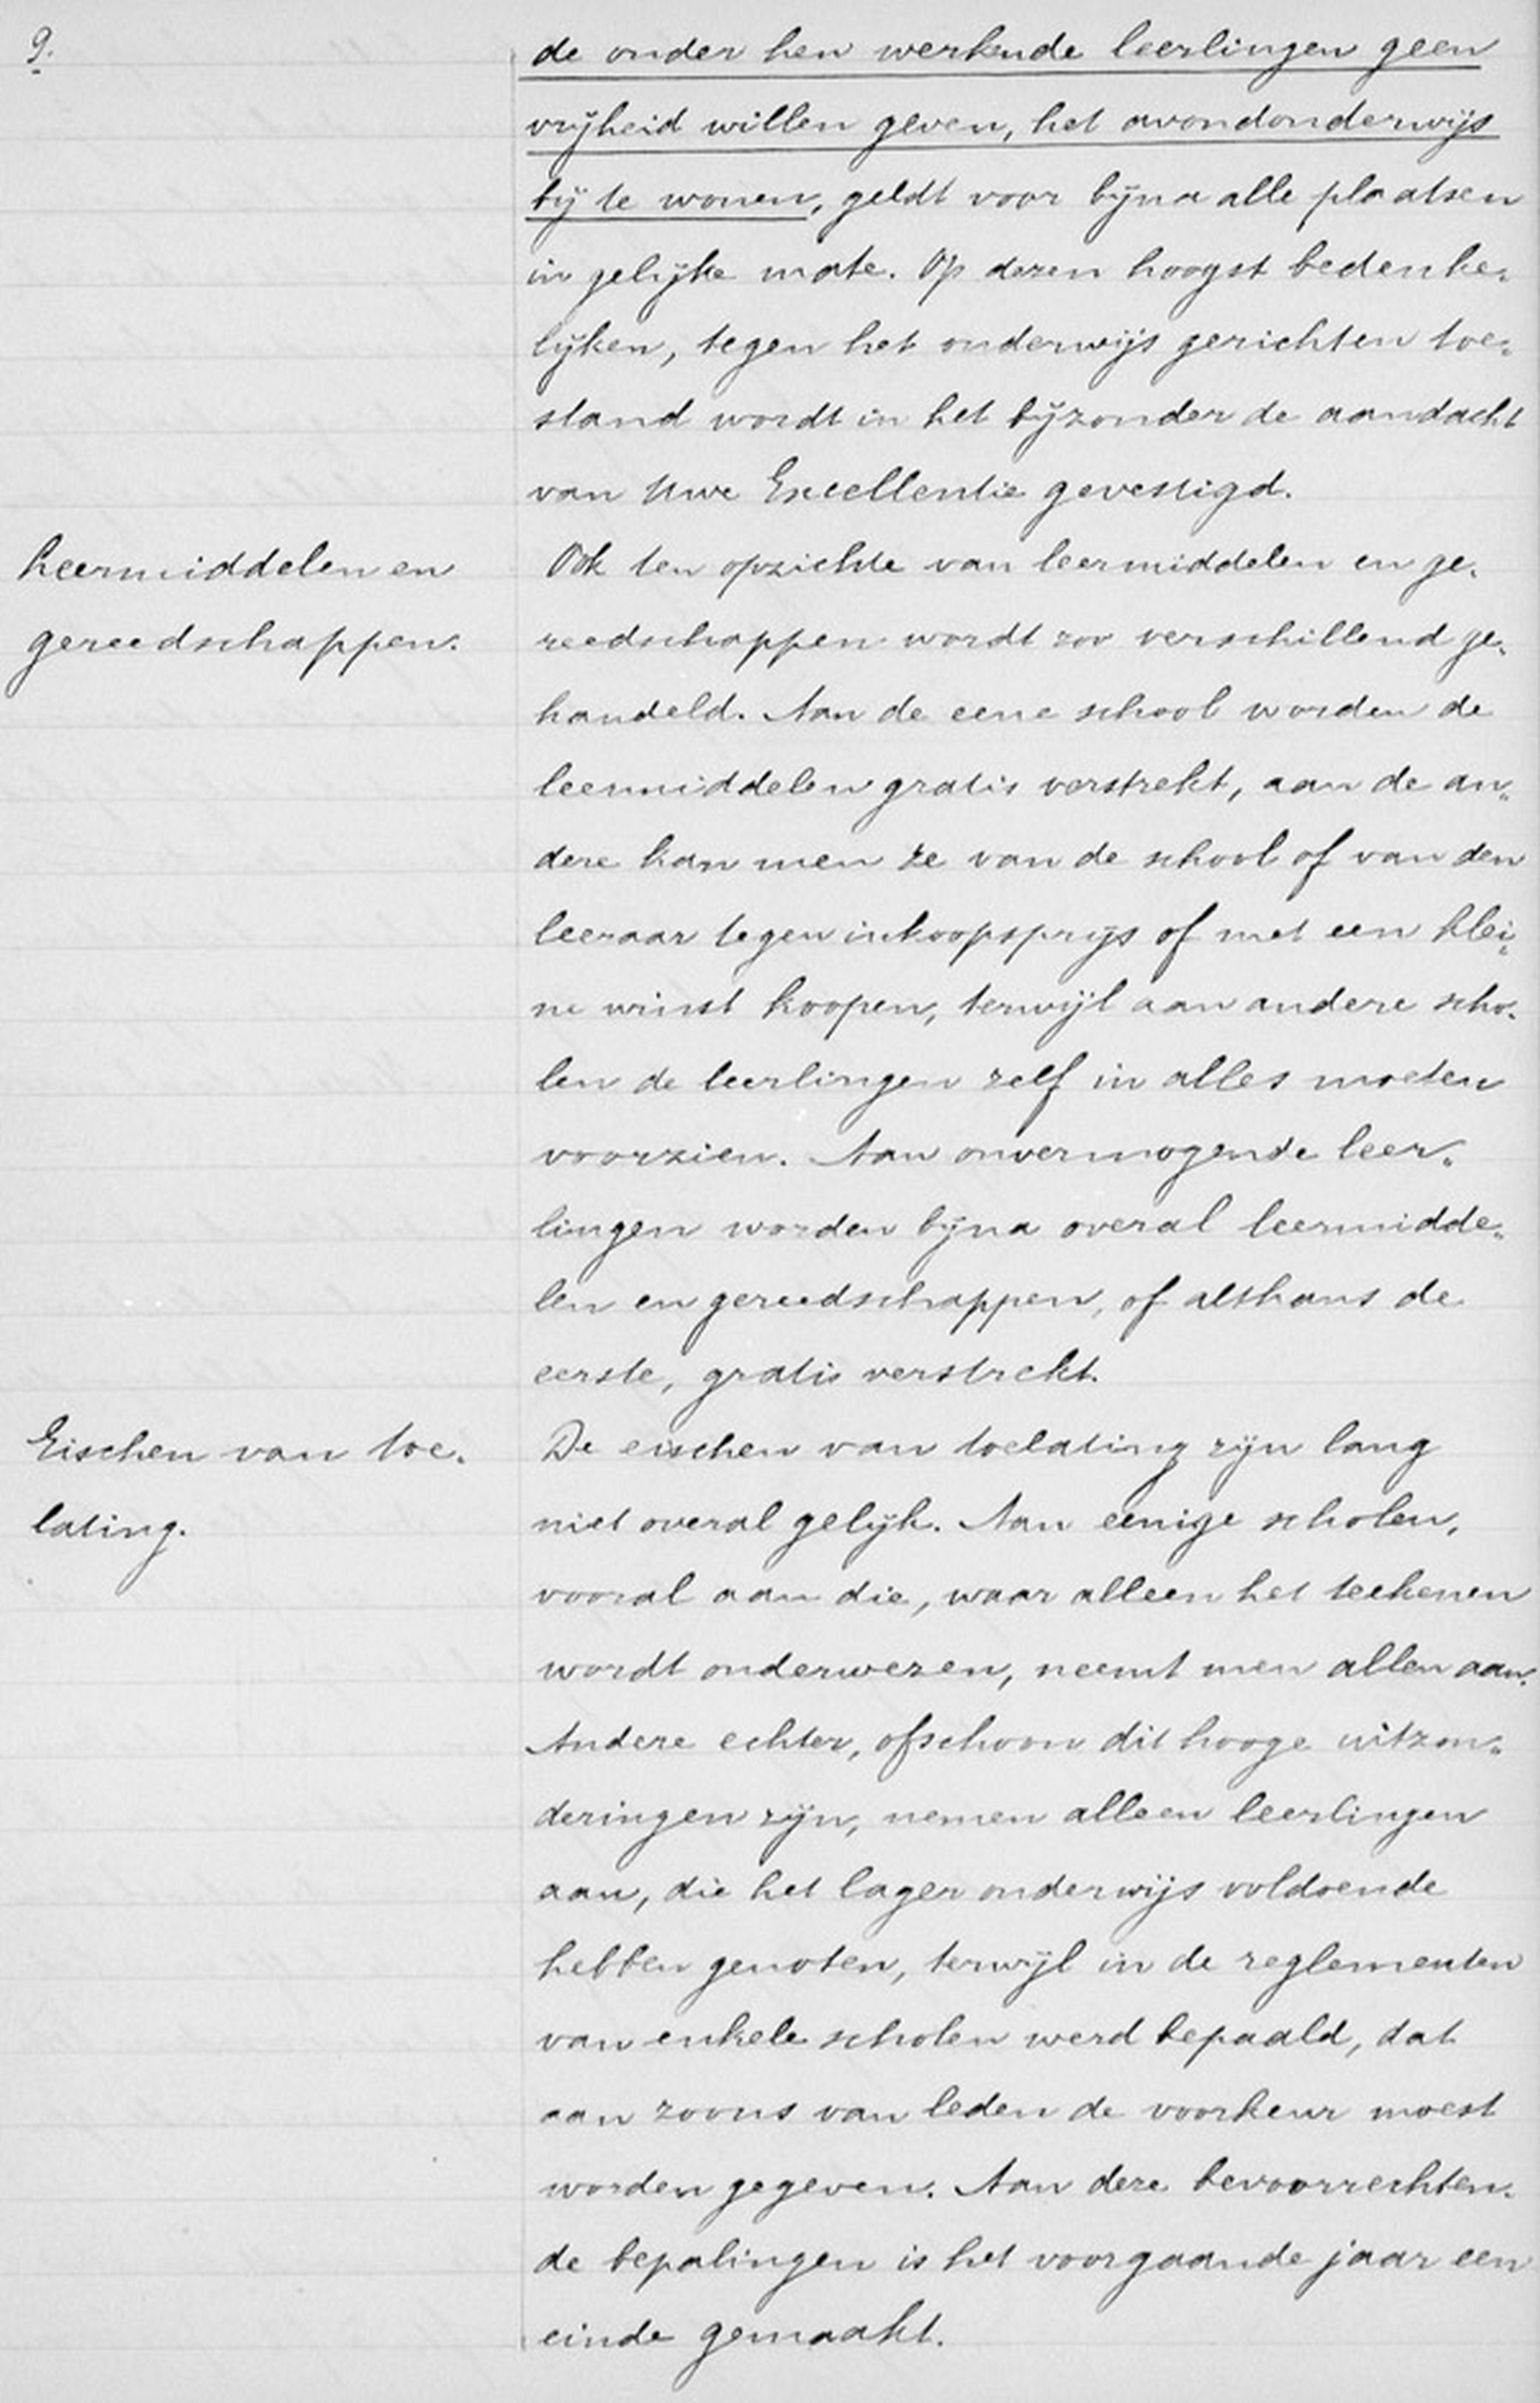 9.
de onder hen werkende leerlingen geen
vrijheid willen geven, het avondonderwijs
bij te wonen, geldt voor bijna alle plaatsen
in gelijke mate. Op dezen hoogst bedenke-
lijken, tegen het onderwijs gerichten toe-
stand wordt in het bijzonder de aandacht
van Uwe Excellentie gevestigd.
Leermiddelen en
gereedschappen.
Ook ten opzichte van leermiddelen en ge-
reedschappen wordt zoo verschillend ge-
handeld. Aan de eene school worden de
leermiddelen gratis verstrekt, aan de an-
dere kan men ze van de school of van den
leeraar tegen inkoopsprijs of met een klei-
ne winst koopen, terwijl aan andere scho-
len de leerlingen zelf in alles moeten
voorzien. Aan onvermogende leer-
lingen worden bijna overal leermidde-
len en gereedschappen, of althans de
eerste, gratis verstrekt.
Eischen van toe-
lating.
De eischen van toelating zijn lang
niet overal gelijk. Aan eenige scholen,
vooral aan die, waar alleen het teekenen
wordt onderwezen, neemt men allen aan.
Andere echter, ofschoon dit hooge uitzon-
deringen zijn, nemen alleen leerlingen
aan, die het lager onderwijs voldoende
hebben genoten, terwijl in de reglementen
van enkele scholen werd bepaald, dat
aan zoons van leden de voorkeur moest
worden gegeven. Aan deze bevoorrechten-
de bepalingen is het voorgaande jaar een
einde gemaakt.